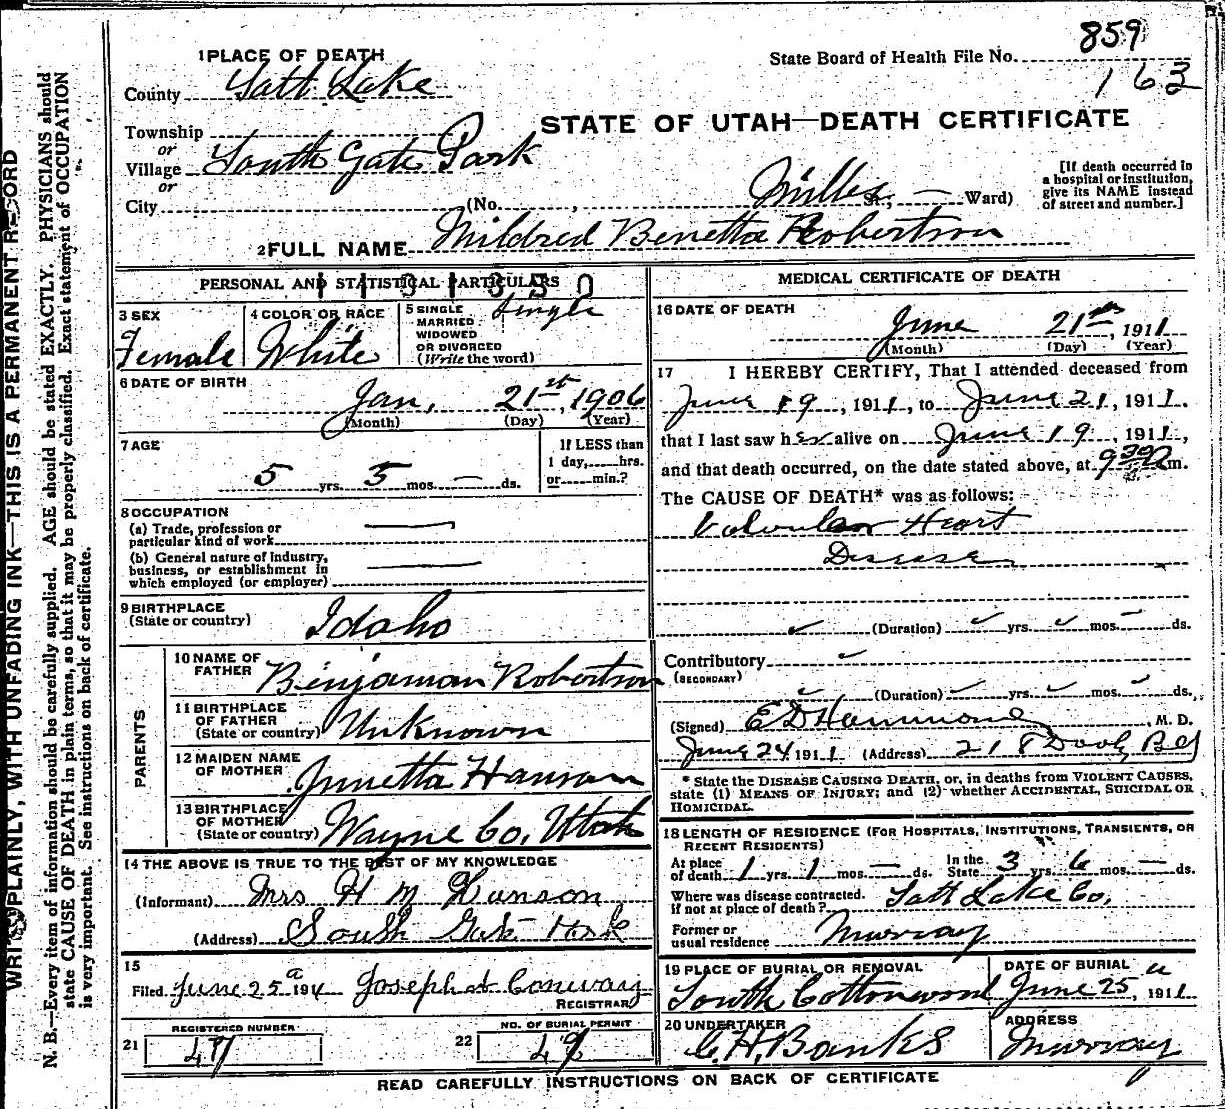 859
State Board of Health File No.
163
1 PLACE OF DEATH
County Salt Lake
STATE OF UTAH—DEATH CERTIFICATE
Township
or
Village South Gate Park
or
City (No. , Millers St.; — Ward)
[If death occurred in a hospital or institution, give its NAME instead of street and number.]
2 FULL NAME Mildred Benetta Robertson
PERSONAL AND STATISTICAL PARTICULARS
3 SEX Female
4 COLOR OR RACE White
5 SINGLE MARRIED WIDOWED OR DIVORCED (Write the word) Single
6 DATE OF BIRTH
Jan, 21st, 1906
(Month) (Day) (Year)
7 AGE
5 yrs. 5 mos. — ds.
If LESS than 1 day, hrs. or min.?
8 OCCUPATION
(a) Trade, profession or particular kind of work
(b) General nature of industry, business, or establishment in which employed (or employer)
9 BIRTHPLACE (State or country) Idaho
PARENTS
10 NAME OF FATHER Binjaman Robertson
11 BIRTHPLACE OF FATHER (State or country) Unknown
12 MAIDEN NAME OF MOTHER Hanson
13 BIRTHPLACE OF MOTHER (State or country) Wayne Co, Utah
14 THE ABOVE IS TRUE TO THE BEST OF MY KNOWLEDGE
(Informant) Mrs H M
(Address) South Gate Park
15
Filed June 25 1911 Joseph Conway
REGISTRAR
REGISTERED NUMBER
21 47
NO. OF BURIAL PERMIT
22 49
MEDICAL CERTIFICATE OF DEATH
16 DATE OF DEATH
June 21st, 1911
(Month) (Day) (Year)
17 I HEREBY CERTIFY, That I attended deceased from
June 19, 1911, to June 21, 1911.
that I last saw her alive on June 19, 1911,
and that death occurred, on the date stated above, at 9 30 m.
The CAUSE OF DEATH* was as follows:
Valvular Heart
Disease
(Duration) yrs. mos. ds.
Contributory
(SECONDARY)
(Duration) yrs. mos. ds.
(Signed) E D Hammond, M. D.
June 24 1911 (Address) 218 Dooly Bld
* State the DISEASE CAUSING DEATH, or, in deaths from VIOLENT CAUSES, state (1) MEANS OF INJURY; and (2) whether ACCIDENTAL, SUICIDAL OR HOMICIDAL.
18 LENGTH OF RESIDENCE (FOR HOSPITALS, INSTITUTIONS, TRANSIENTS, OR RECENT RESIDENTS)
At place of death 1 yrs. 1 mos. — ds. In the State 3 yrs. 6 mos. — ds.
Where was disease contracted, if not at place of death? Salt Lake Co,
Former or usual residence Murray
19 PLACE OF BURIAL OR REMOVAL South Cottonwood
DATE OF BURIAL June 25, 1911
20 UNDERTAKER C. H. Banks
ADDRESS Murray
READ CAREFULLY INSTRUCTIONS ON BACK OF CERTIFICATE
WRITE PLAINLY, WITH UNFADING INK—THIS IS A PERMANENT RECORD
N. B.—Every item of information should be carefully supplied. AGE should be stated EXACTLY. PHYSICIANS should
state CAUSE OF DEATH in plain terms, so that it may be properly classified. Exact statement of OCCUPATION
is very important. See instructions on back of certificate.